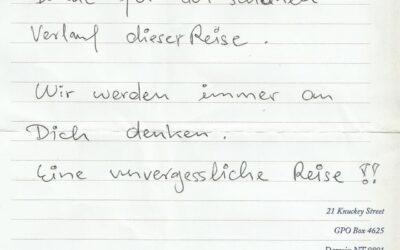 Verlauf dieser Reise.
Wir werden immer an
Dich denken.
Eine unvergessliche Reise !!
21 Knuckey Street
GPO Box 4625